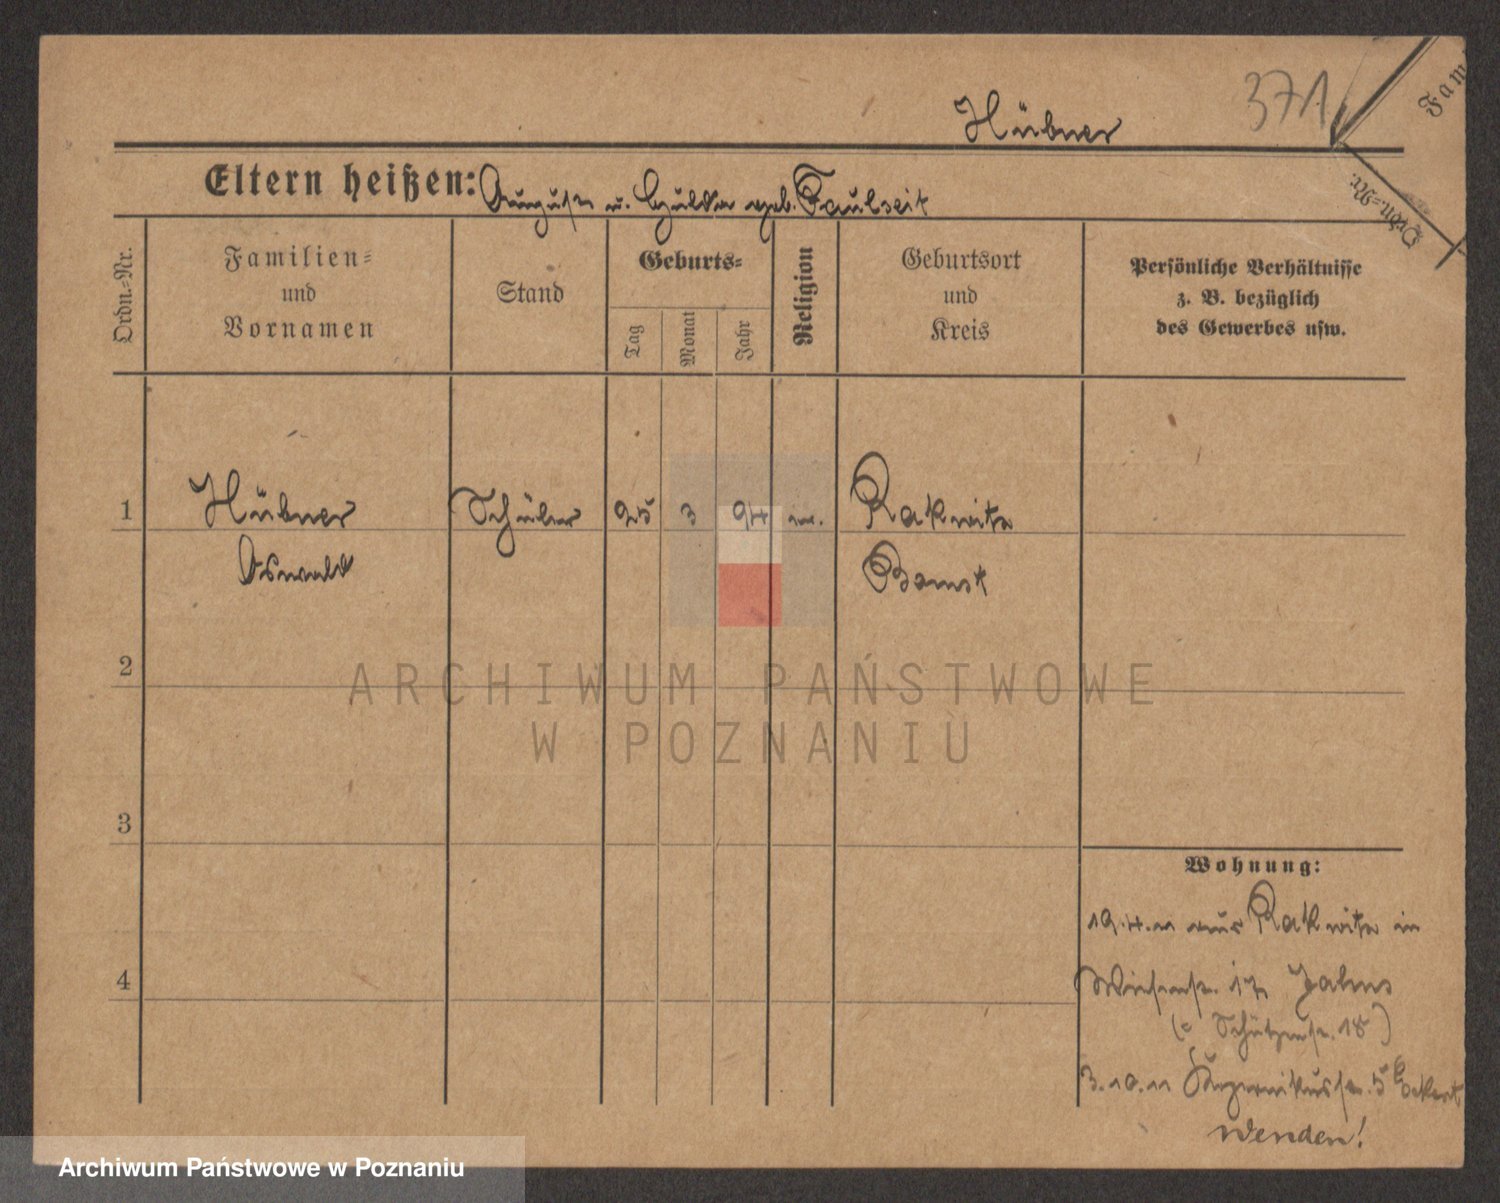 371
Fam
Hübner
Ordn.=Nr.
Eltern heißen: August u. Hulda geb. Faulseit
Ordn.=Nr.
Familien=
und
Vornamen
Stand
Geburts=
Tag
Monat
Jahr
Religion
Geburtsort
und
Kreis
Persönliche Verhältnisse
z. B. bezüglich
des Gewerbes usw.
1
Hübner
Schüler
25
3
94
Rakwitz
Oswald
Bomst
2
ARCHIWUM PAŃSTWOWE
W POZNANIU
3
Wohnung:
19.4.11 aus Rakwitz in
Wiesenstr. 17
(c Schützenstr. 18)
3.10.11 Kopernikusstr. 5
4
wenden!
Archiwum Państwowe w Poznaniu